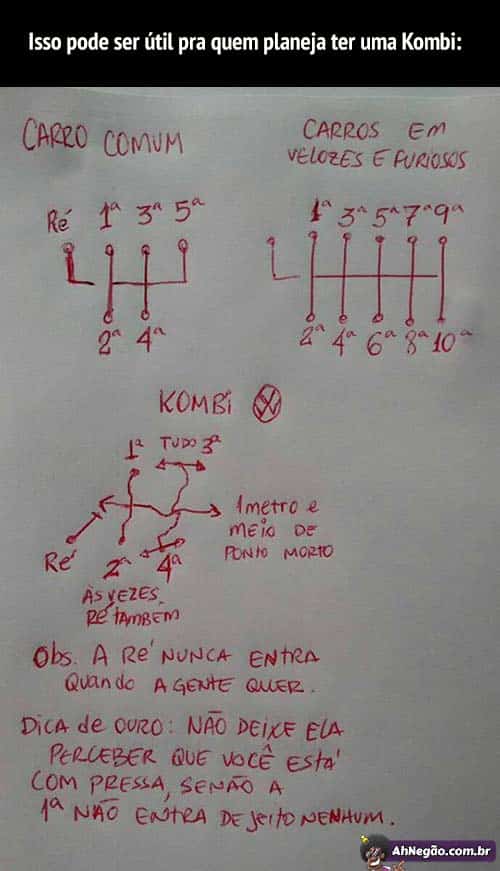 Isso pode ser útil pra quem planeja ter uma Kombi:
CARRO COMUM
Ré 1ª 3ª 5ª
2ª 4ª
CARROS EM
VELOZES E FURIOSOS
1ª 3ª 5ª 7ª 9ª
2ª 4ª 6ª 8ª 10ª
KOMBI
1ª TUDO 3ª
1 METRO E
MEIO DE
PONTO MORTO
Ré 2ª 4ª
ÀS VEZES,
RÉ TAMBÉM
Obs. A Ré NUNCA ENTRA
QUANDO A GENTE QUER.
DICA de OURO: NÃO DEIXE ELA
PERCEBER QUE VOCÊ ESTÁ
COM PRESSA, SENÃO A
1ª NÃO ENTRA DE JEITO NENHUM.
AhNegão.com.br